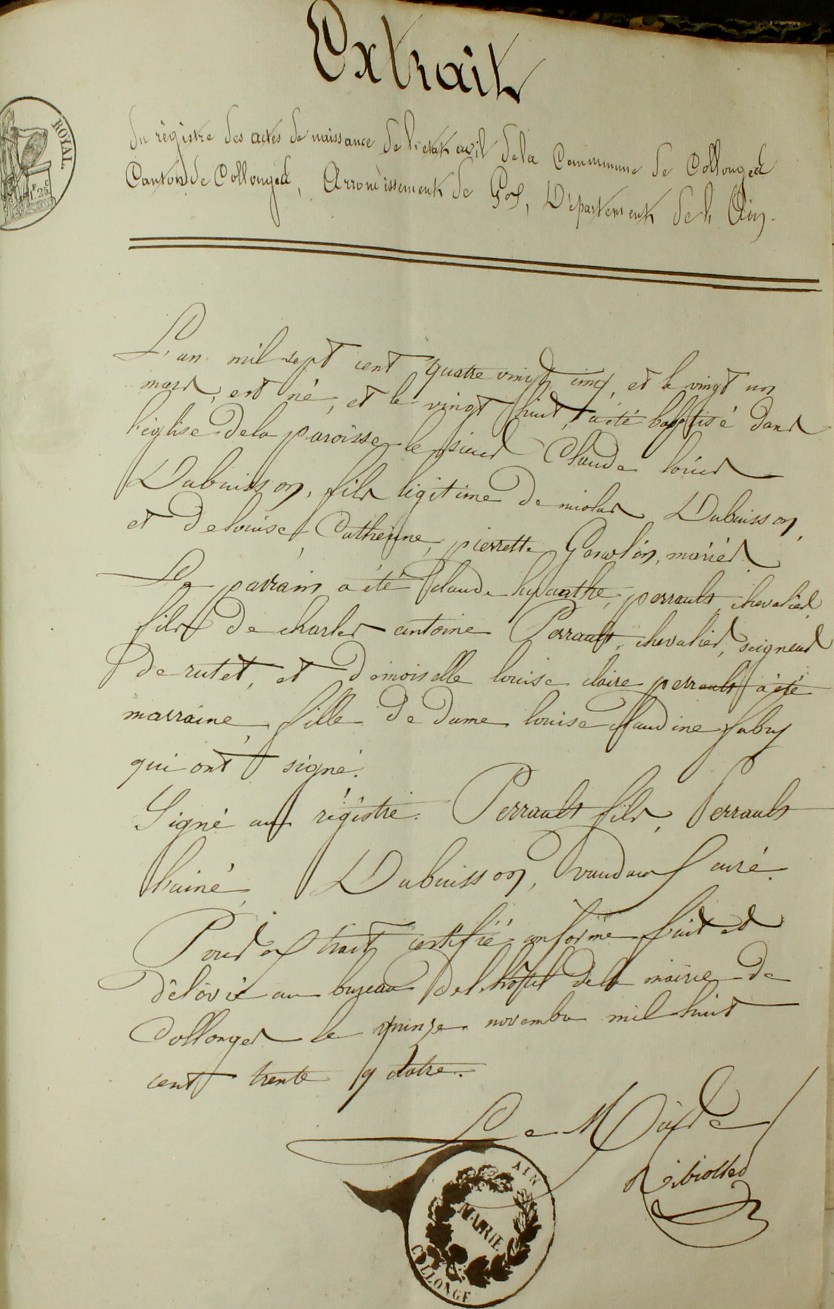 Extrait
ROYAL
du régistre des actes de naissance de l'état civil de la Commune de Collonges
Canton de Collonges, Arrondissement de Gex, Département de l'Ain.
L'an mil sept cent quatre vingt cinq, et le vingt un
mars, est né, et le vingt huit, a été baptisé dans
l'église de la paroisse le sieur Claude louis
Dubuisson, fils légitime de nicolas Dubuisson,
et de louise, Catherine, pierrette mariés.
Le parrain a été Claude hyacinthe, perrault, chevalier
fils de charles antoine Perrault, chevalier, seigneur
De rutet, et Demoiselle louise claire perrault a été
marraine, fille de Dame louise claudine fabry
qui ont signé.
Signé au régistre. Perrault fils, Perrault
l'ainé, Dubuisson, curé.
Pour extrait certifié conforme fait et
délivré au bureau de l'hôtel de la mairie de
Collonges le quinze novembre mil huit
cent trente quatre.
Le Maire
AIN
MAIRIE
COLLONGE